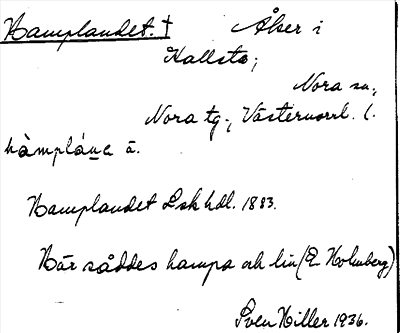 Hamplandet. † Åker i
Hallsta,
Nora sn,
Nora tg., Västernorrl. l.
hàmpláṉa ä.
Hamplandet Lsk hdl. 1883.
Här såddes hampa och lin (E Holmberg)
Sven Hiller 1936.